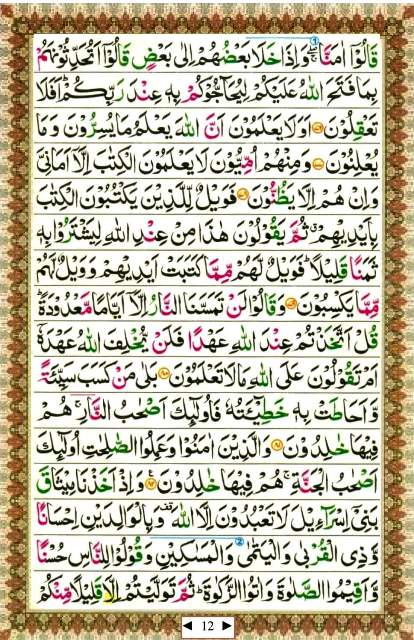 قَالُوْٓا اٰمَنَّا ۚۖ وَاِذَا خَلَا بَعْضُهُمْ اِلٰى بَعْضٍ قَالُوْٓا اَتُحَدِّثُوْنَهُمْ
بِمَا فَتَحَ اللّٰهُ عَلَيْكُمْ لِيُحَآجُّوْكُمْ بِهٖ عِنْدَ رَبِّكُمْ ؕ اَفَلَا
تَعْقِلُوْنَ ۞ اَوَلَا يَعْلَمُوْنَ اَنَّ اللّٰهَ يَعْلَمُ مَا يُسِرُّوْنَ وَ مَا
يُعْلِنُوْنَ ۞ وَمِنْهُمْ اُمِّيُّوْنَ لَا يَعْلَمُوْنَ الْكِتٰبَ اِلَّآ اَمَانِىَّ
وَاِنْ هُمْ اِلَّا يَظُنُّوْنَ ۞ فَوَيْلٌ لِّلَّذِيْنَ يَكْتُبُوْنَ الْكِتٰبَ
بِاَيْدِيْهِمْ ۗ ثُمَّ يَقُوْلُوْنَ هٰذَا مِنْ عِنْدِ اللّٰهِ لِيَشْتَرُوْا بِهٖ
ثَمَنًا قَلِيْلًا ؕ فَوَيْلٌ لَّهُمْ مِّمَّا كَتَبَتْ اَيْدِيْهِمْ وَوَيْلٌ لَّهُمْ
مِّمَّا يَكْسِبُوْنَ ۞ وَقَالُوْا لَنْ تَمَسَّنَا النَّارُ اِلَّآ اَيَّامًا مَّعْدُوْدَةً ؕ
قُلْ اَتَّخَذْتُمْ عِنْدَ اللّٰهِ عَهْدًا فَلَنْ يُّخْلِفَ اللّٰهُ عَهْدَهٗٓ
اَمْ تَقُوْلُوْنَ عَلَى اللّٰهِ مَا لَا تَعْلَمُوْنَ ۞ بَلٰى مَنْ كَسَبَ سَيِّئَةً
وَّاَحَاطَتْ بِهٖ خَطِيْٓئَتُهٗ فَاُولٰٓئِكَ اَصْحٰبُ النَّارِ ۚ هُمْ
فِيْهَا خٰلِدُوْنَ ۞ وَالَّذِيْنَ اٰمَنُوْا وَعَمِلُوا الصّٰلِحٰتِ اُولٰٓئِكَ
اَصْحٰبُ الْجَنَّةِ ۚ هُمْ فِيْهَا خٰلِدُوْنَ ۞ وَاِذْ اَخَذْنَا مِيْثَاقَ
بَنِىْٓ اِسْرَآءِيْلَ لَا تَعْبُدُوْنَ اِلَّا اللّٰهَ وَبِالْوَالِدَيْنِ اِحْسَانًا
وَّذِى الْقُرْبٰى وَالْيَتٰمٰى وَالْمَسٰكِيْنِ وَقُوْلُوْا لِلنَّاسِ حُسْنًا
وَّاَقِيْمُوا الصَّلٰوةَ وَاٰتُوا الزَّكٰوةَ ؕ ثُمَّ تَوَلَّيْتُمْ اِلَّا قَلِيْلًا مِّنْكُمْ
◄ 12 ►